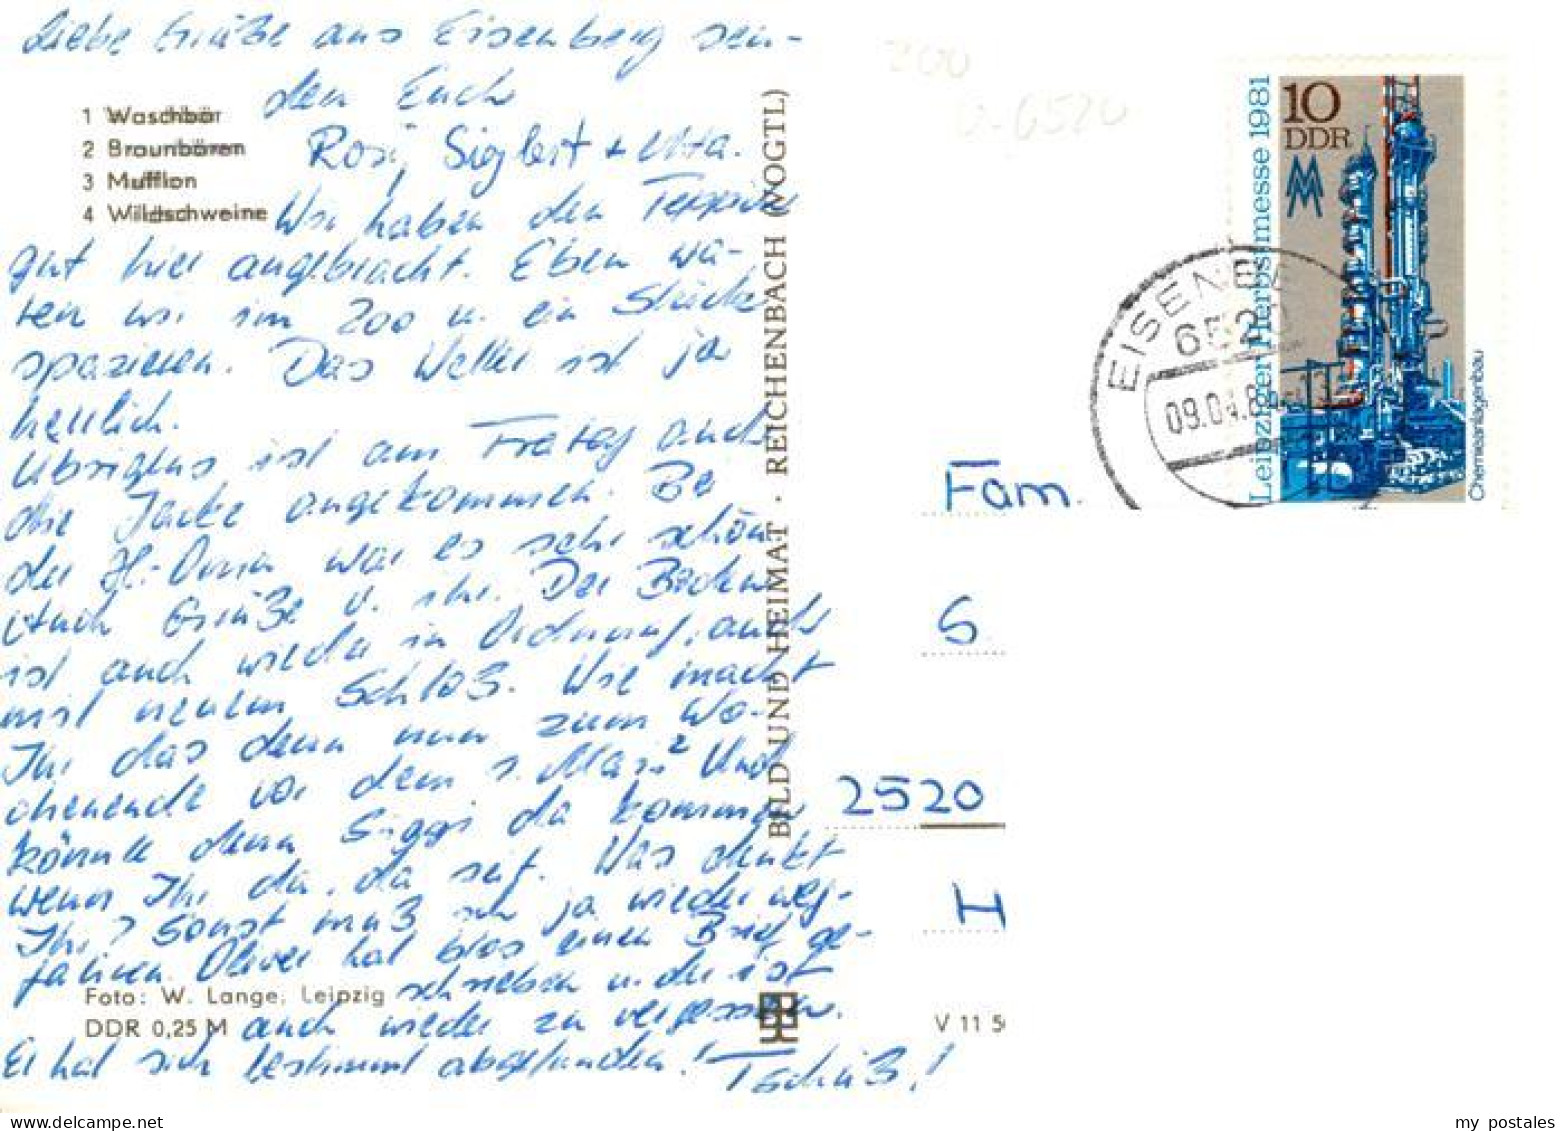 Liebe Grüße aus Eisenberg sen-
den Euch
Rosi, Sigbert + Utta.
1 Waschbär
2 Braunbären
3 Mufflon
4 Wildschweine
Wir haben den Teppich
gut hier angebracht. Eben wa-
ren wir im Zoo u. ein Stück
spazieren. Das Wetter ist ja
herrlich.
Übrigens ist am Freitag auch
die Jacke angekommen. Bei
der H.-Oma war es sehr schön
Auch Grüße v. ihr. Der
ist auch wieder in Ordnung, auch
mit neuem Schloß. Wie macht
Ihr das denn nun zum Wo-
chenende vor dem 1. Mai? Und
könnte denn Siggi da kommen
wenn Ihr da, da seit. Was denkt
Ihr? Sonst muß ich ja wieder weg-
fahren. Oliver hat blos einen Brief ge-
schrieben u. der ist
auch wieder zu vergessen.
Er hat sich bestimmt abgefunden! Tschüß!
Foto: W. Lange, Leipzig
DDR 0,25 M
BILD UND HEIMAT · REICHENBACH (VOGTL)
V 11 5
200
0-6520
10
DDR
MM
Leipziger Herbstmesse 1981
Chemieanlagenbau
EISENBE
6520
09.04.8
Fam.
S
2520
H
my postales